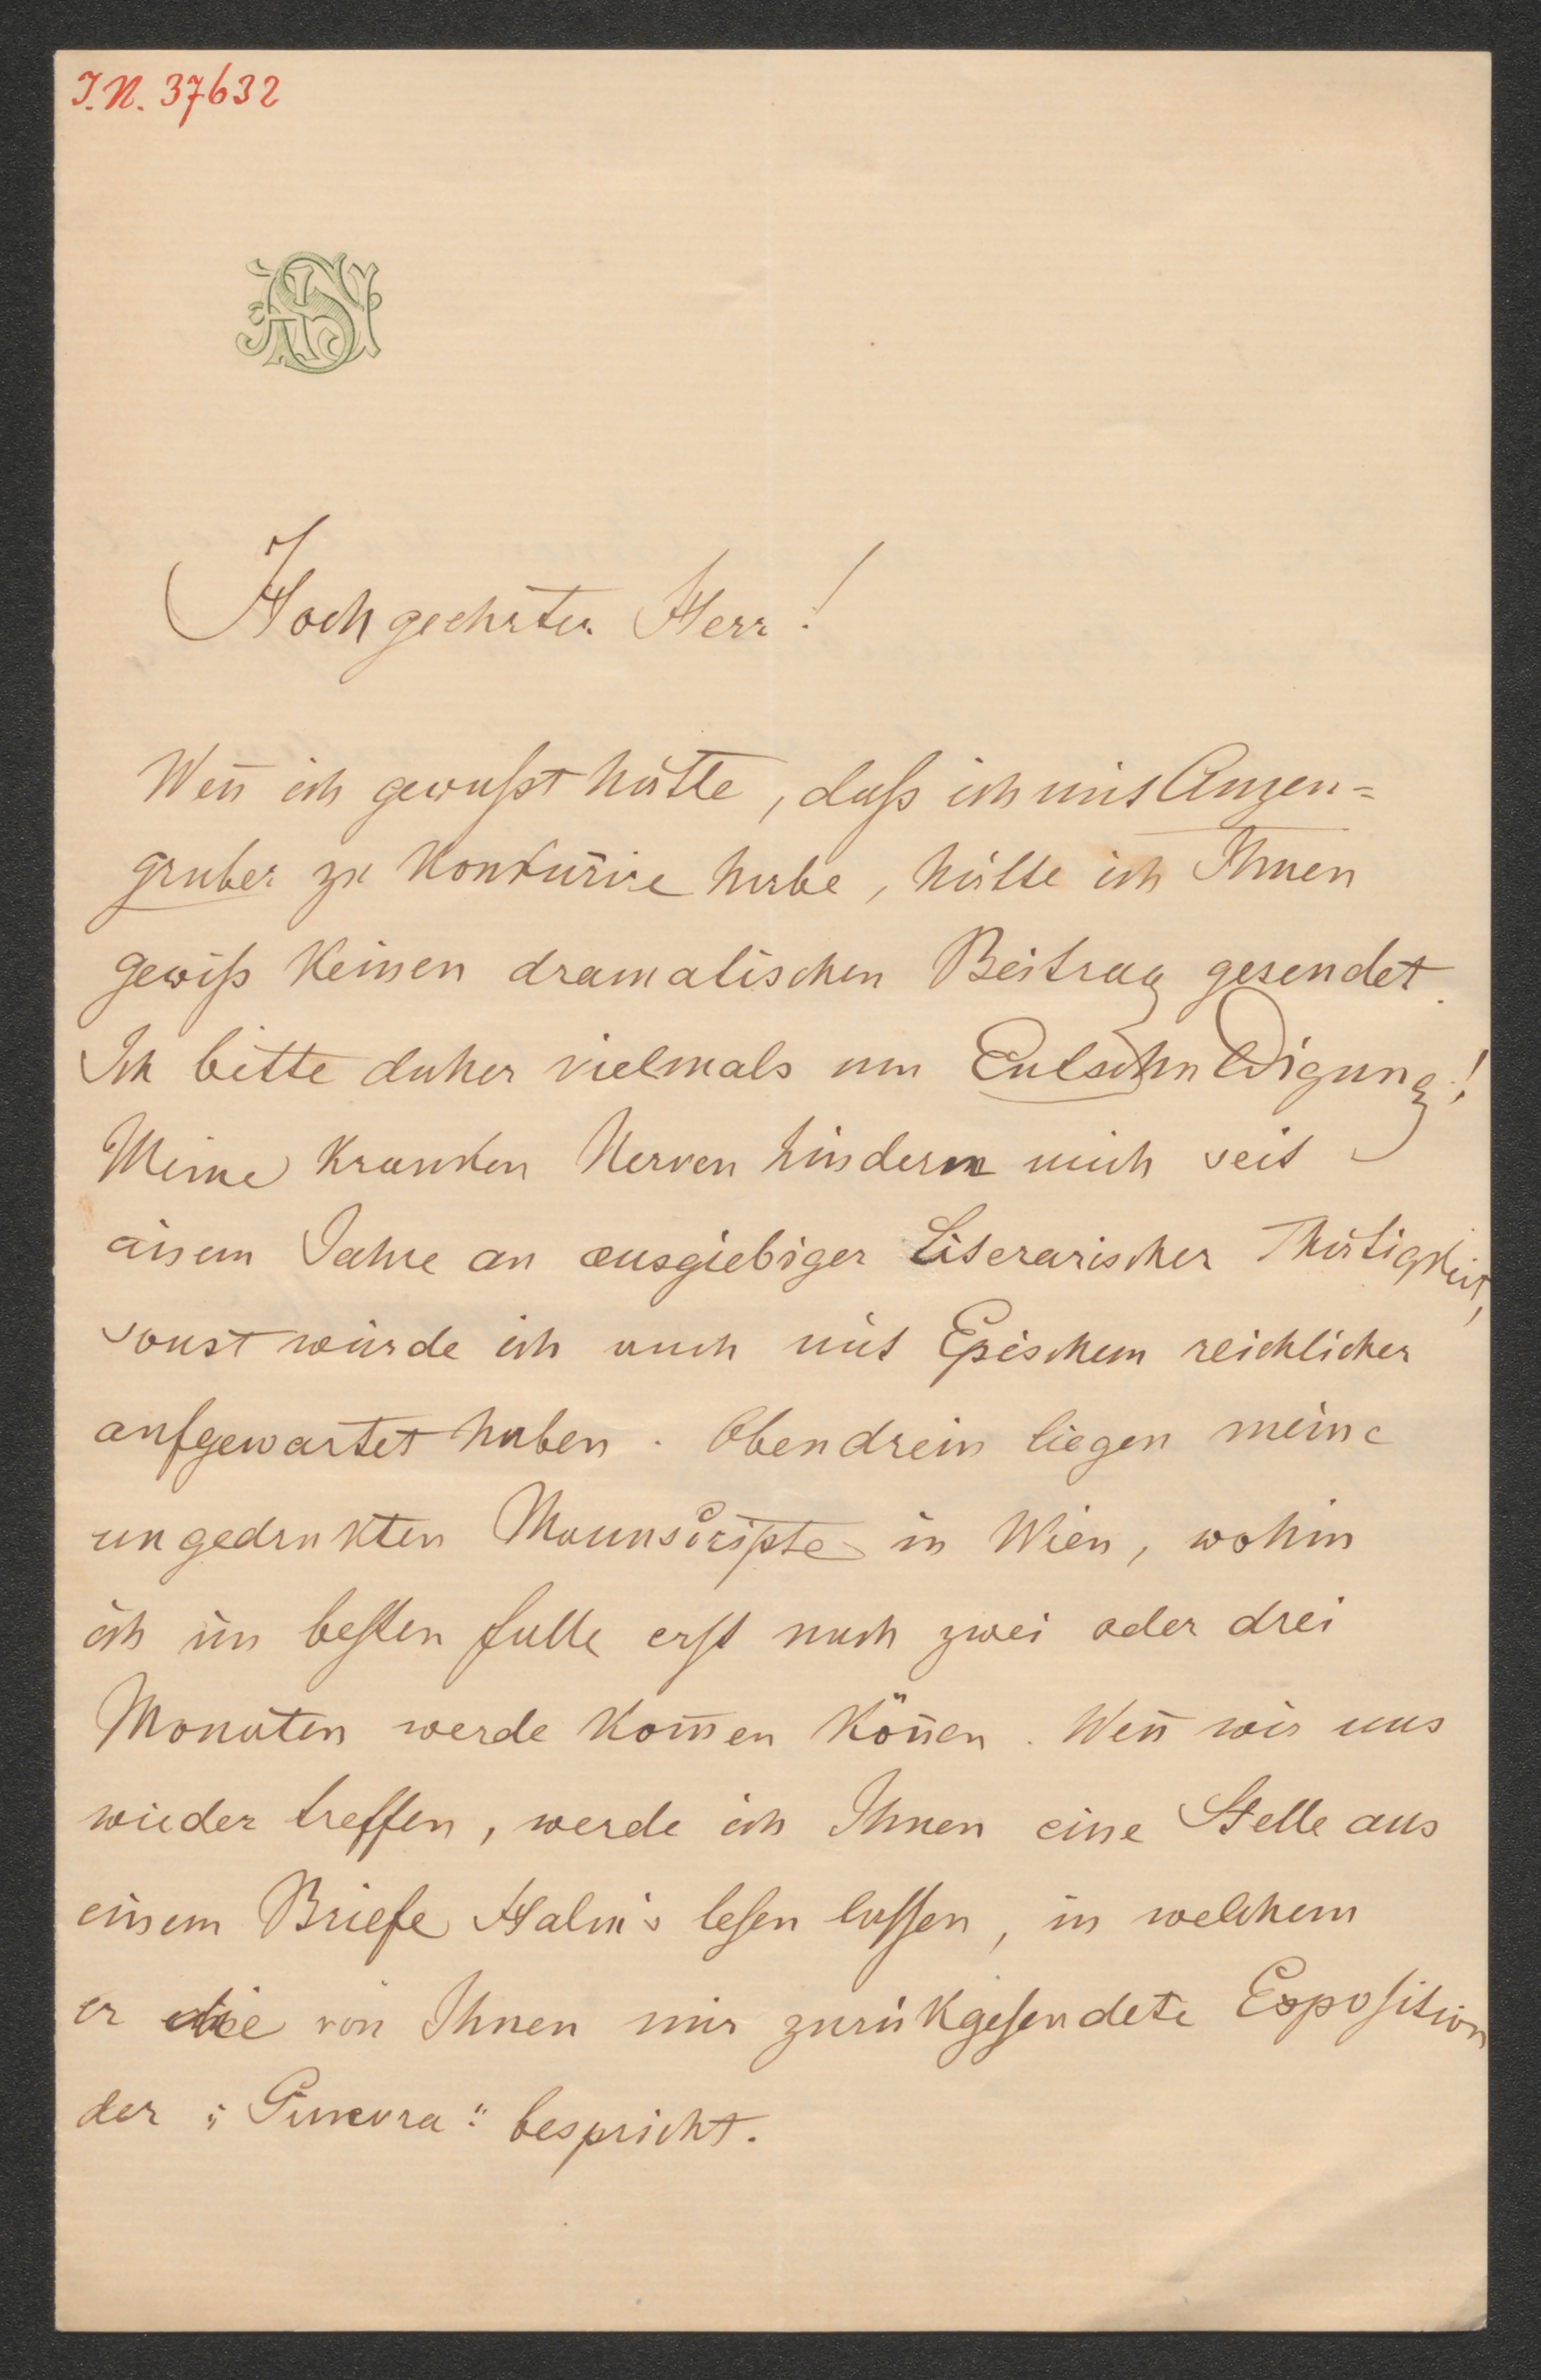 I.N. 37632
Hochgeehrter Herr!
Weñ ich gewußt hätte, daß ich mit Anzen=
gruber zu konkurire habe, hätte ich Ihnen
gewiß keinen dramatischen Beitrag gesendet.
Ich bitte daher vielmals um Entschuldigung!
Meine kranken Nerven hindern mich seit
einem Jahre an ausgiebiger literarischer Thätigkeit,
sonst würde ich auch mit Epischem reichlicher
aufgewartet haben. Obendrein liegen meine
ungedrukten Manuscripte in Wien, wohin
ich im besten Falle erst nach zwei oder drei
Monaten werde kom̄en köñen. Weñ wir uns
wieder treffen, werde ich Ihnen eine Stelle aus
einem Briefe Halm's lesen lassen, in welchem
er die von Ihnen mir zurükgesendete Exposition
der „Ginevra" bespricht.